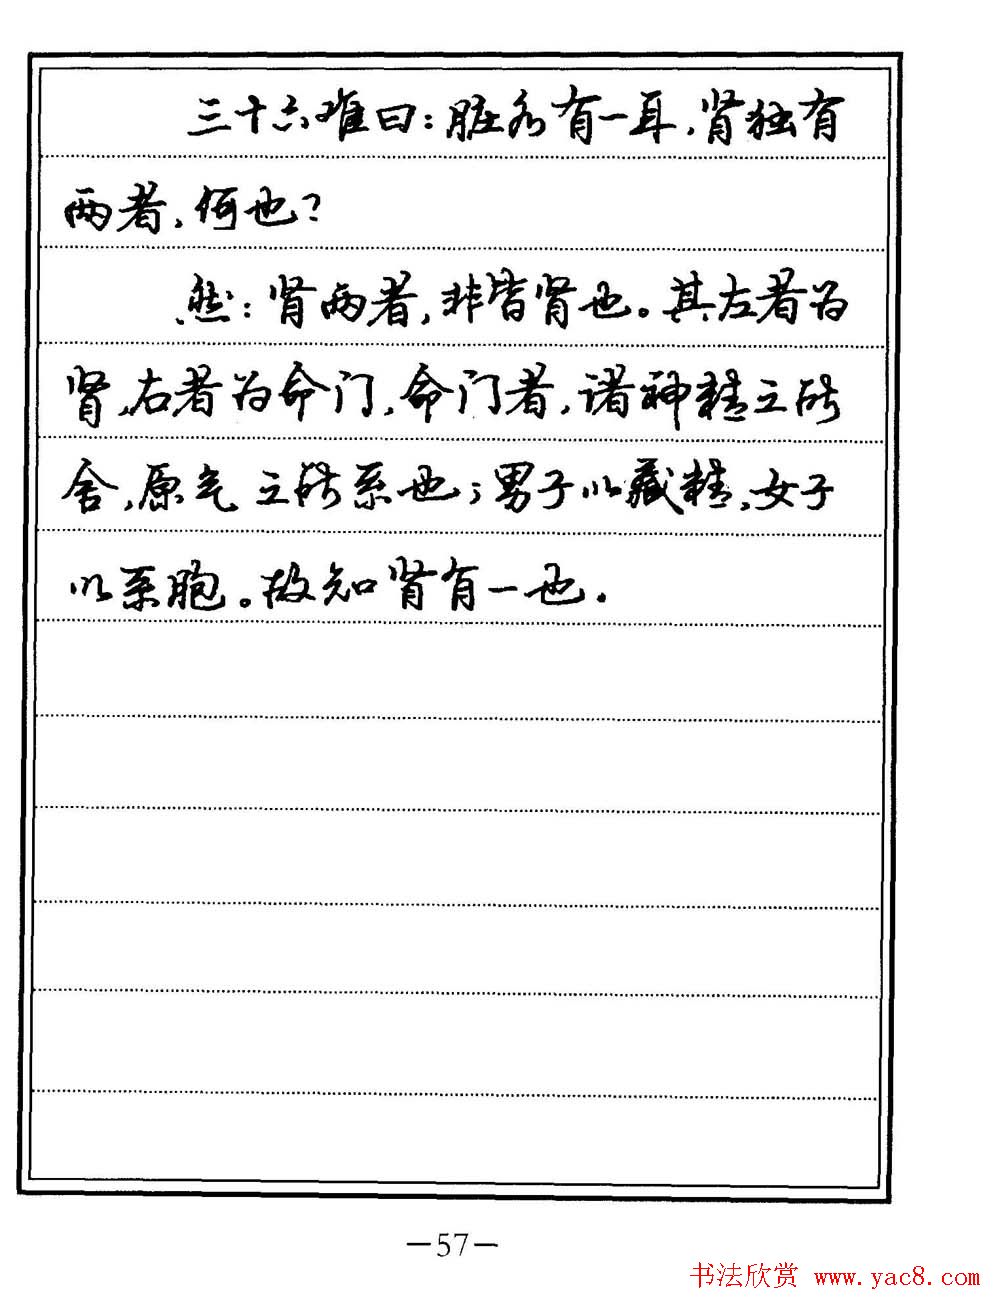 三十六难曰：脏各有一耳，肾独有
两者，何也？
然：肾两者，非皆肾也。其左者为
肾，右者为命门，命门者，诸神精之所
舍，原气之所系也；男子以藏精，女子
以系胞。故知肾有一也．
—57—
书法欣赏 www.yac8.com